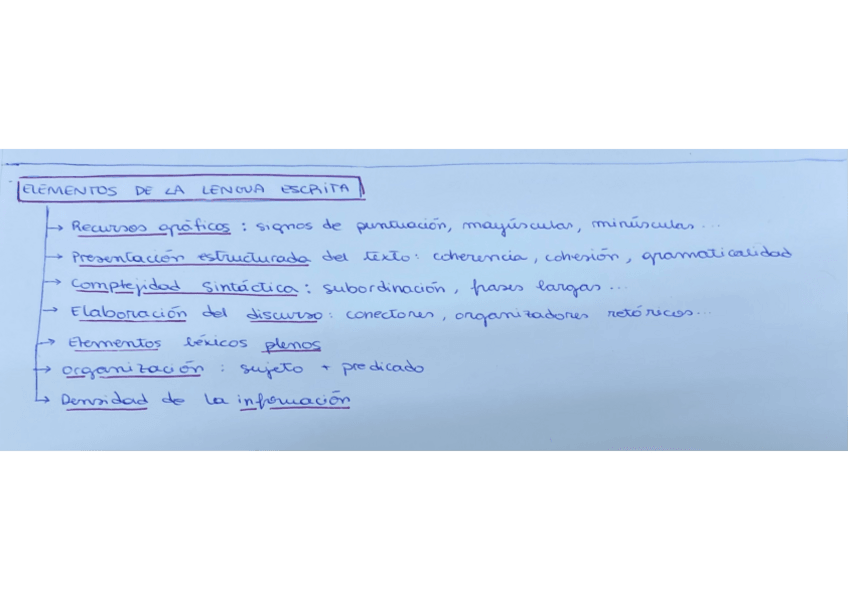 ELEMENTOS DE LA LENGUA ESCRITA
→ Recursos gráficos : signos de puntuación, mayúsculas, minúsculas...
→ Presentación estructurada del texto: coherencia, cohesión, gramaticalidad
→ Complejidad sintáctica : subordinación, frases largas...
→ Elaboración del discurso: conectores, organizadores retóricos...
→ Elementos léxicos plenos
→ organización : sujeto + predicado
→ Densidad de la información